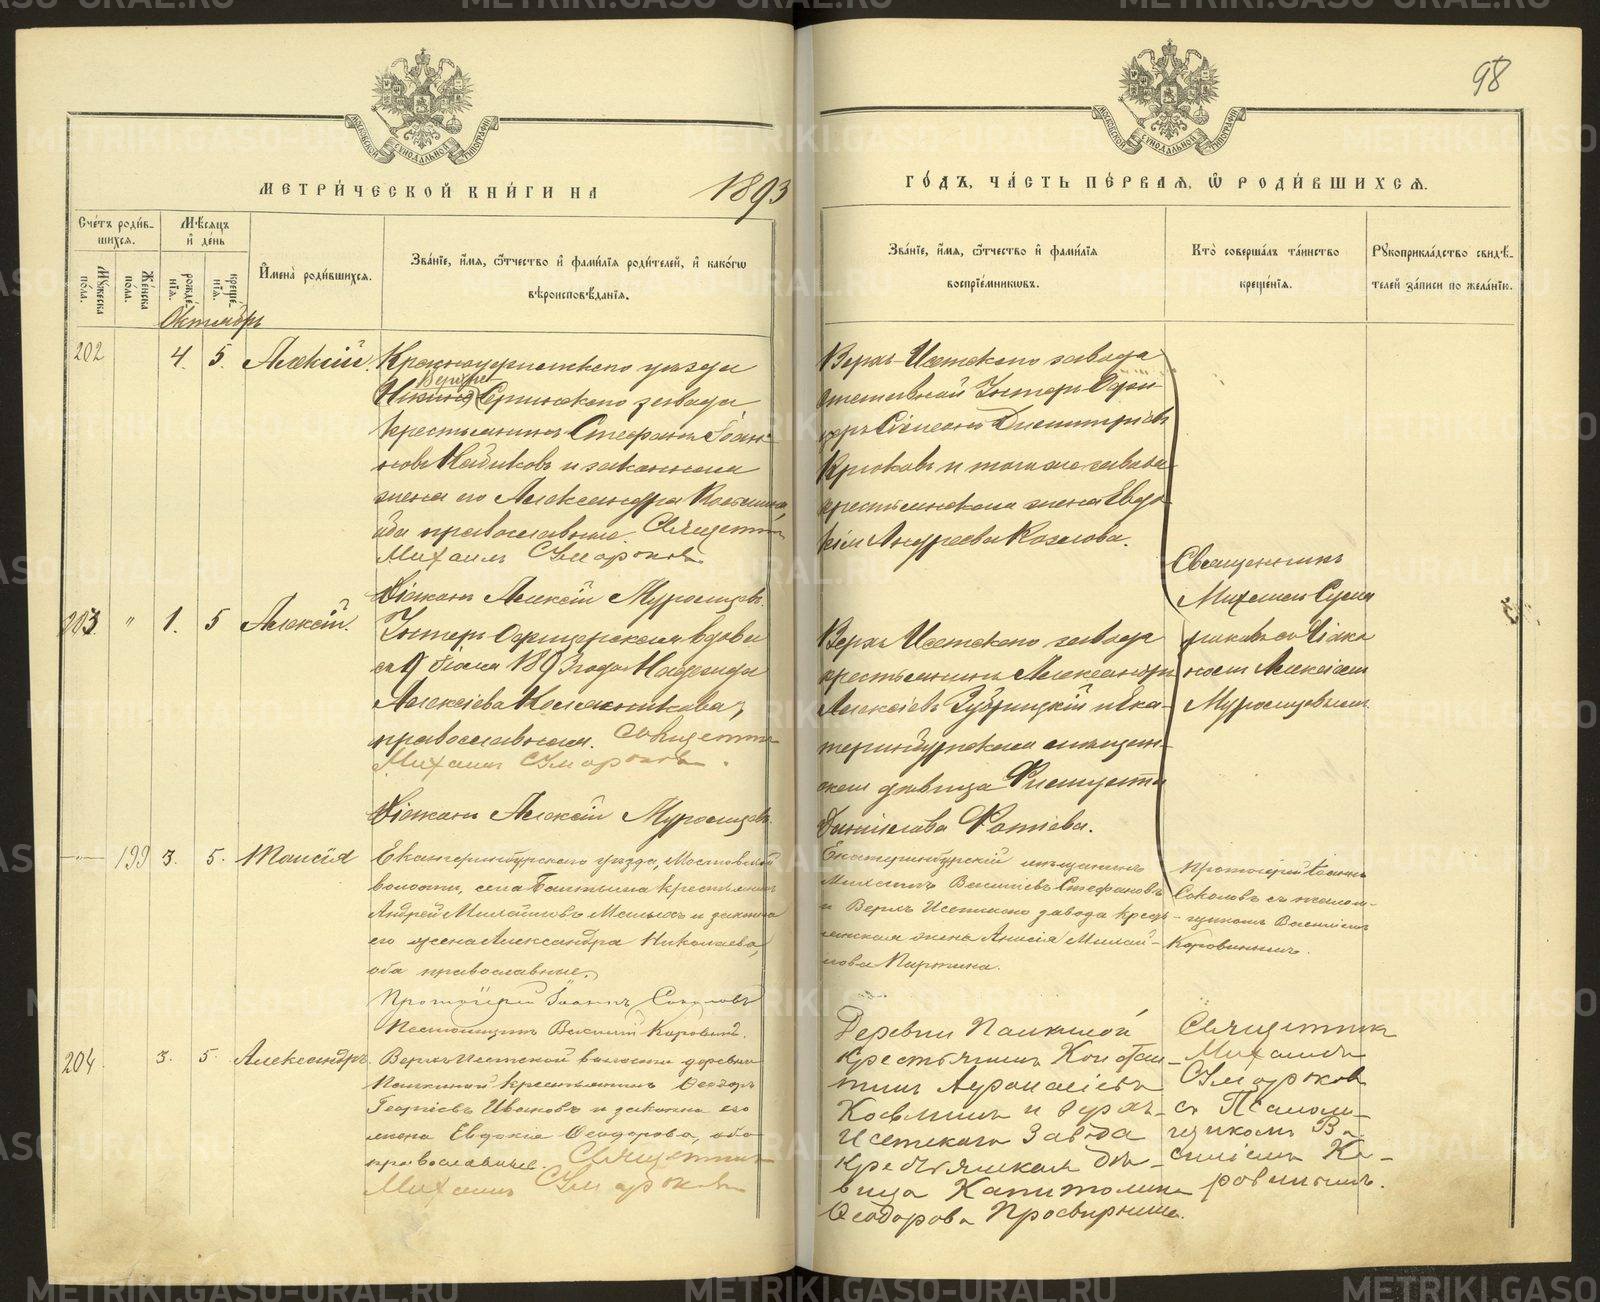 98
МОСКОВСКОЙ СѴНОДАЛЬНОЙ ТИПОГРАФІИ
МОСКОВСКОЙ СѴНОДАЛЬНОЙ ТИПОГРАФІИ
МЕТРИ́ЧЕСКОЙ КНИ́ГИ НА 1893
ГО́ДЪ, ЧА́СТЬ ПЕ́РВАЯ, Ѿ РОДИ́ВШИХСѦ.
Сче́тъ роди́в-
шихсѧ.
Мꙋжеска по́ла.
Же́нска по́ла.
Мѣ́сѧцъ
и҆ де́нь
рожде́нїѧ.
креще́нїѧ.
И҆мена̀ роди́вшихсѧ.
Зва́нїе, и҆́мѧ, ѻ҆́тчество и҆ фами́лїѧ роди́телей, и҆ како́гѡ
вѣроисповѣ́данїѧ.
Зва́нїе, и҆́мѧ, ѻ҆́тчество и҆ фами́лїѧ
воспрїе́мникѡвъ.
Кто̀ соверша́лъ та́инство
креще́нїѧ.
Рꙋкоприкла́дство свидѣ́-
телей за́писи по жела́нїю.
Октябрь
202 4. 5. Алексій.
Красноуфимскаго уѣзда
Верхне
Сергинскаго завода
крестьянинъ Стефанъ Іоан-
новъ и законная
жена его Александра
оба православные. Священникъ
Михаилъ
Діаконъ Алексій
Верхъ-Исетскаго завода
отставной Унтеръ Офи-
церъ Симеонъ Димитріевъ
Крюковъ и того же завода
крестьянская жена Евдо-
кія Андреева Козлова.
Священникъ
Михаилъ
съ діако-
номъ Алексіемъ
203 " 1. 5 Алексій.
Унтеръ Офицерская вдова
съ 9 Іюля 1893 года Надежда
Алексіева
православная. Священникъ
Михаилъ
Діаконъ Алексій
Верхъ Исетскаго завода
крестьянинъ Александръ
Алексіевъ и Ека-
теринбургская мѣщан-
ская дѣвица
Даніилова Фотіева.
— 199 3. 5. Таисія
Екатеринбургскаго уѣзда, Мостовской
волости, села крестьянинъ
Андрей Михайловъ и законная
его жена Александра Николаева,
оба православные.
Протоіерей Іоаннъ Соколовъ
Псаломщикъ Василій Коровинъ.
Екатеринбургскій мѣщанинъ
Михаилъ Васильевъ Стефановъ
и Верхъ Исетскаго завода кресть-
янская жена Анисія Михай-
лова Паркина.
Протоіерей Іоаннъ
Соколовъ съ псалом-
щикомъ Василіемъ
Коровинымъ.
204 3. 5. Александръ.
Верхъ Исетской волости деревни
Палкиной крестьянинъ Ѳеодоръ
Георгіевъ Ивановъ и законная его
жена Евдокія Ѳеодорова, оба
православные. Священникъ
Михаилъ
Деревни Палкиной
крестьянинъ Констан-
тинъ Аѳанасіевъ
и Верхъ-
Исетскаго завода
крестьянская дѣ-
вица Капитолина
Ѳеодорова Просвирнина.
Священникъ
Михаилъ
съ Псалом-
щикомъ Ва-
силіемъ Ко-
ровинымъ.
METRIKI.GASO-URAL.RU